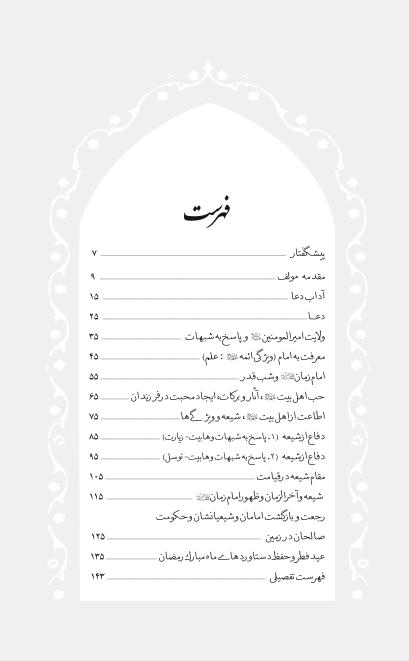 فهرست
پیشگفتار ۷
مقدمه مولف ۹
آداب دعا ۱۵
دعا ۲۵
ولایت امیرالمومنین و پاسخ به شبهات ۳۵
معرفت به امام (ویژگی ائمه : علم) ۴۵
امام زمان و شب قدر ۵۵
حب اهل بیت، آثار و برکات، ایجاد محبت در فرزندان ۶۵
اطاعت از اهل بیت، شیعه و ویژگی‌ها ۷۵
دفاع از شیعه (۱. پاسخ به شبهات وهابیت - زیارت) ۸۵
دفاع از شیعه (۲. پاسخ به شبهات وهابیت - توسل) ۹۵
مقام شیعه در قیامت ۱۰۵
شیعه و آخرالزمان و ظهور امام زمان ۱۱۵
رجعت و بازگشت امامان و شیعیانشان و حکومت
صالحان در زمین ۱۲۵
عید فطر و حفظ دستاوردهای ماه مبارک رمضان ۱۳۵
فهرست تفصیلی ۱۴۳